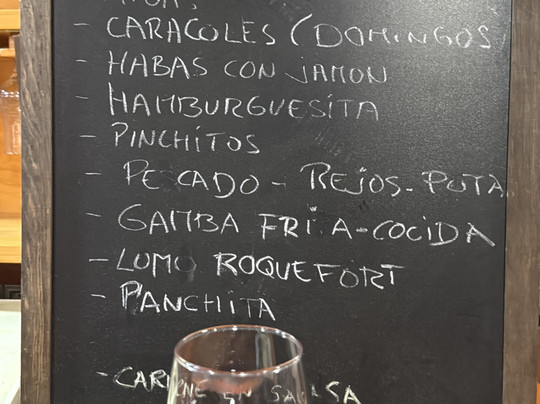 - CARACOLES (DOMINGOS
- HABAS CON JAMON
- HAMBURGUESITA
- PINCHITOS
- PESCADO - REJOS - POTA
- GAMBA FRIA - COCIDA
- LOMO ROQUEFORT
- PANCHITA
- CARNE EN SALSA